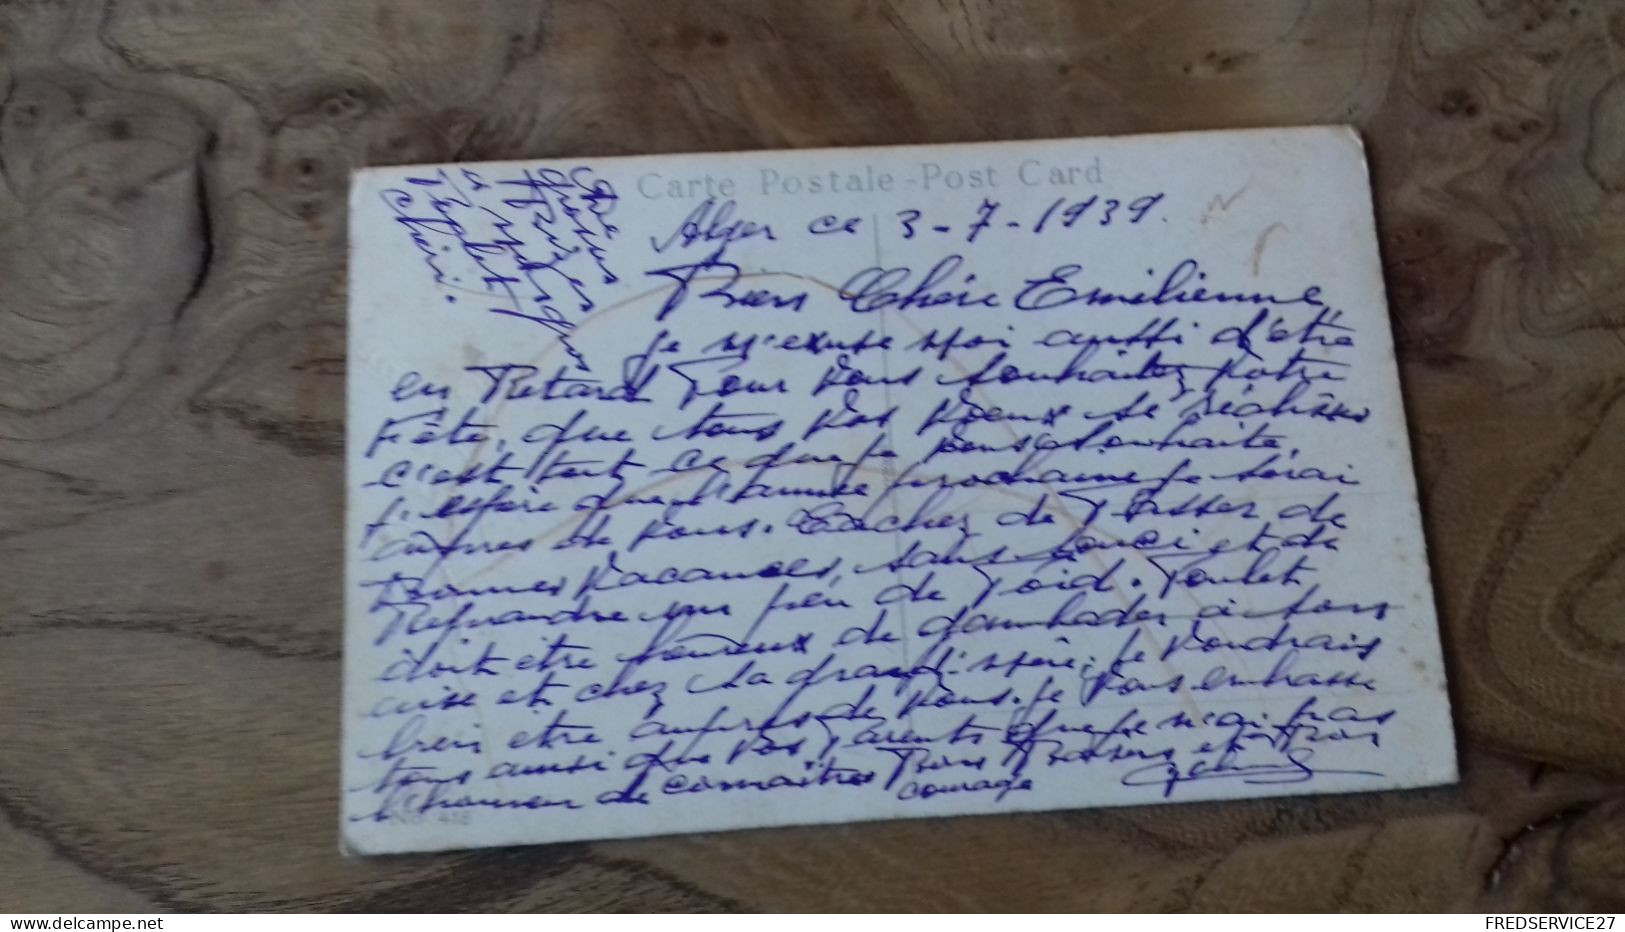 Carte Postale - Post Card
Alger ce 3-7-1939.
Bien Chère Emilienne,
je m'excuse moi aussi d'être
en Retard Pour vous souhaitez votre
Fête, que tous vos voeux se
c'est tout ce que je vous souhaite,
j'espère que l'année prochaine je serai
aupres de vous. Tachez de Passer de
Bonnes Vacances, sans souci et de
Reprendre un peu de Poid. Poulet
doit être heureux de gambader à son
aise et chez sa grand'mère. je voudrais
bien être aupres de vous. je vous embrasse
tous ainsi que vos Parents que je n'ai pas
l'honneur de connaitres Bons Baisers et bon
courage
gros
Baises
a
gros
cheri.
No 418
FREDSERVICE27
www.delcampe.net